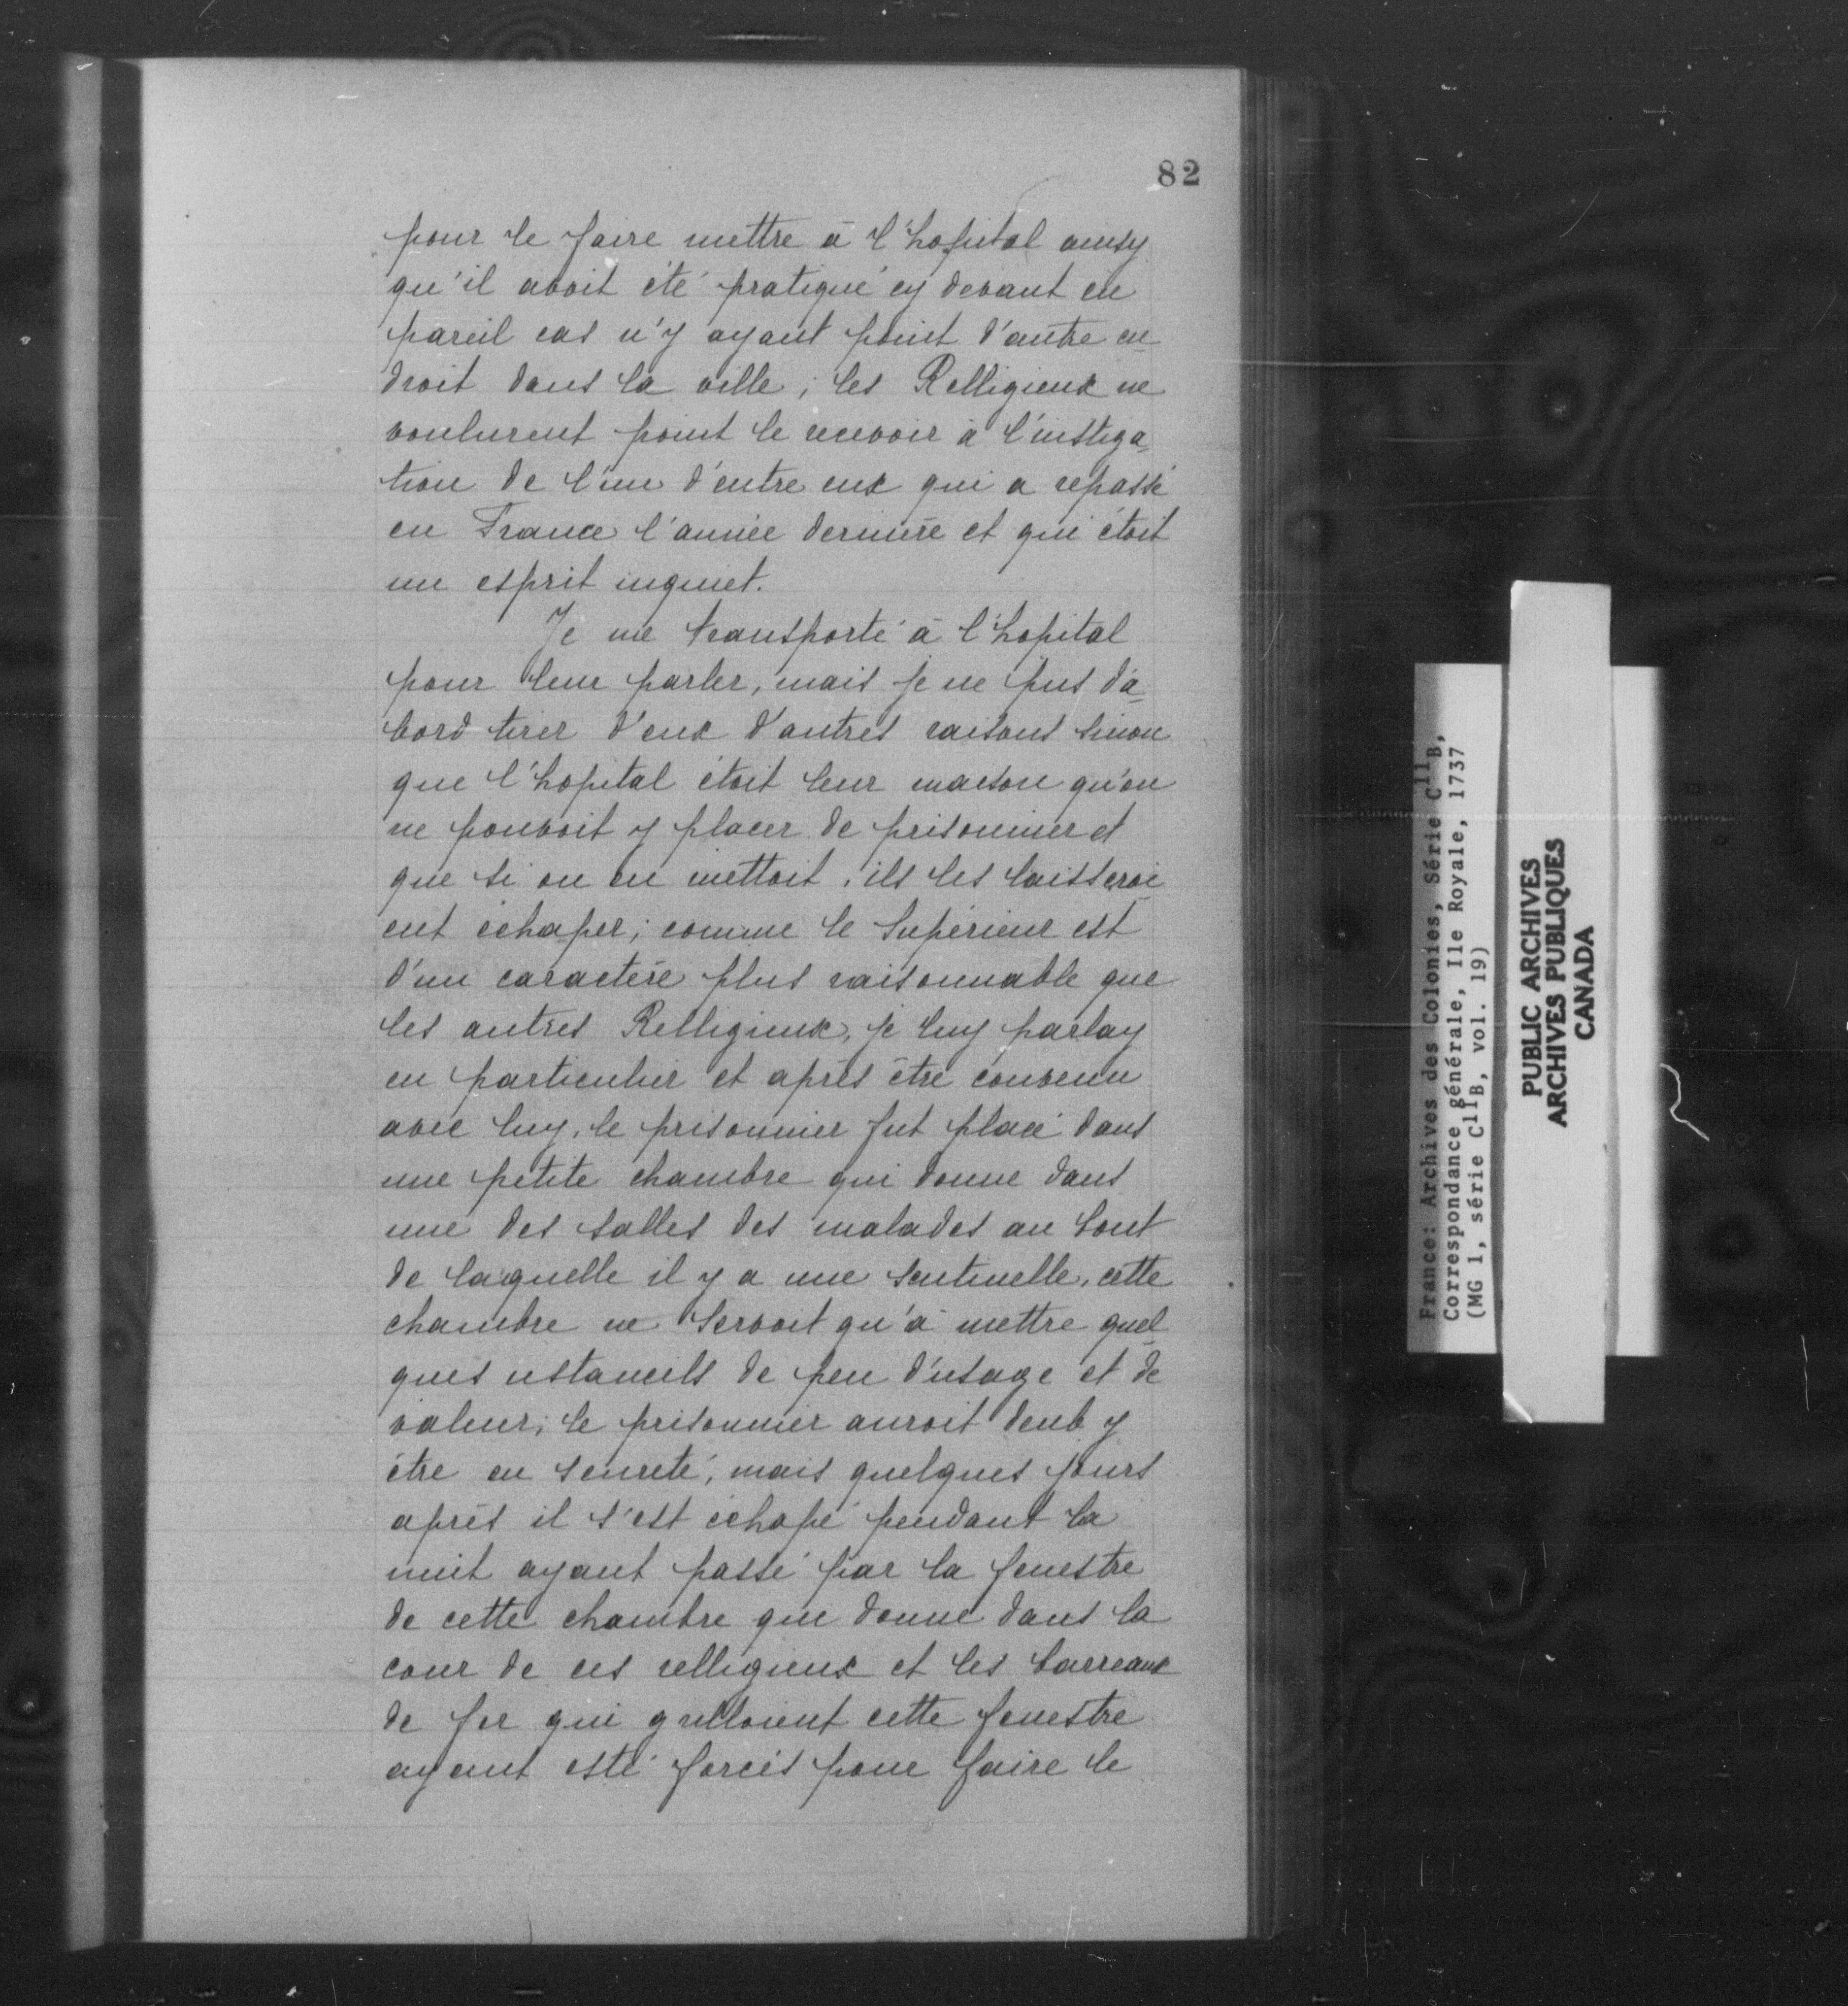 82
pour le faire mettre à l'hopital ainsy
qu'il avoit été pratiqué cy devant en
pareil cas n'y ayant point d'autre en-
droit dans la ville; les Relligieux ne
voulurent point le recevoir à l'instiga-
tion de l'un d'entre eux qui a repassé
en France l'année derniere et qui étoit
un esprit inquiet.
Je me transporté à l'hopital
pour leur parler, mais je ne pus d'a-
bord tirer d'eux d'autres raisons sinon
que l'hopital étoit leur maison qu'on
ne pouvoit y placer de prisonnier et
que si on en mettoit, ils les laisseroi-
ent échaper; comme le Supérieur est
d'un caractère plus raisonnable que
les autres Relligieux, je luy parlay
en particulier et après être convenu
avec luy, le prisonnier fut placé dans
une petite chambre qui donne dans
une des salles des malades au bout
de laquelle il y a une sentinelle, cette
chambre ne servoit qu'à mettre quel-
ques ustancils de peu d'usage et de
valeur; le prisonnier auroit deub y
être en seureté, mais quelques jours
après il s'est échapé pendant la
nuit ayant passé par la fenestre
de cette chambre que donne dans la
cour de ces relligieux et les barreaux
de fer qui grilloient cette fenestre
ayant esté forcés pour faire le
France: Archives des Colonies, Série C11B,
Correspondance générale, Ile Royale, 1737
(MG 1, série C11B, vol. 19)
PUBLIC ARCHIVES
ARCHIVES PUBLIQUES
CANADA